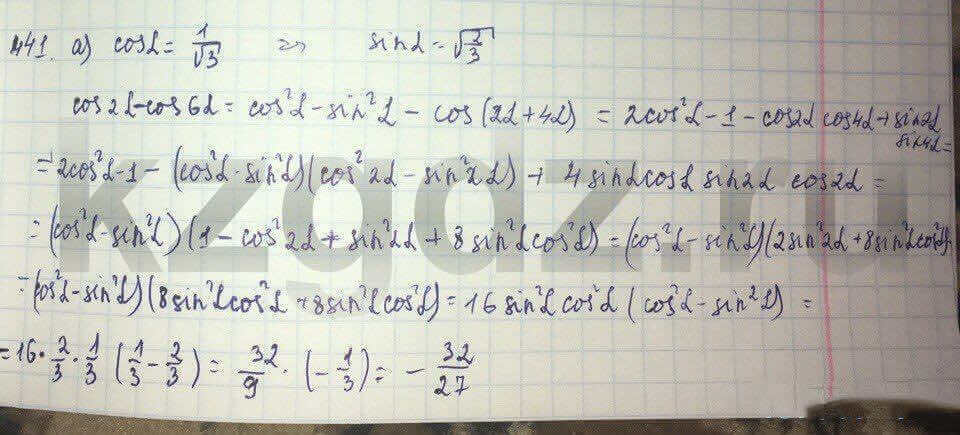 441. а) cosα = 1/√3 => sinα = √(2/3)
cos2α - cos6α = cos²α - sin²α - cos(2α + 4α) = 2cos²α - 1 - cos2α cos4α + sin2α
sin4α =
= 2cos²α - 1 - (cos²α - sin²α)(cos²2α - sin²2α) + 4 sinα cosα sin2α cos2α =
= (cos²α - sin²α)(1 - cos²2α + sin²2α + 8 sin²α cos²α) = (cos²α - sin²α)(2sin²2α + 8sin²α cos²α)
= (cos²α - sin²α)(8sin²α cos²α + 8sin²α cos²α) = 16 sin²α cos²α (cos²α - sin²α) =
= 16 · 2/3 · 1/3 (1/3 - 2/3) = 32/9 · (-1/3) = - 32/27
kzgdz.ru